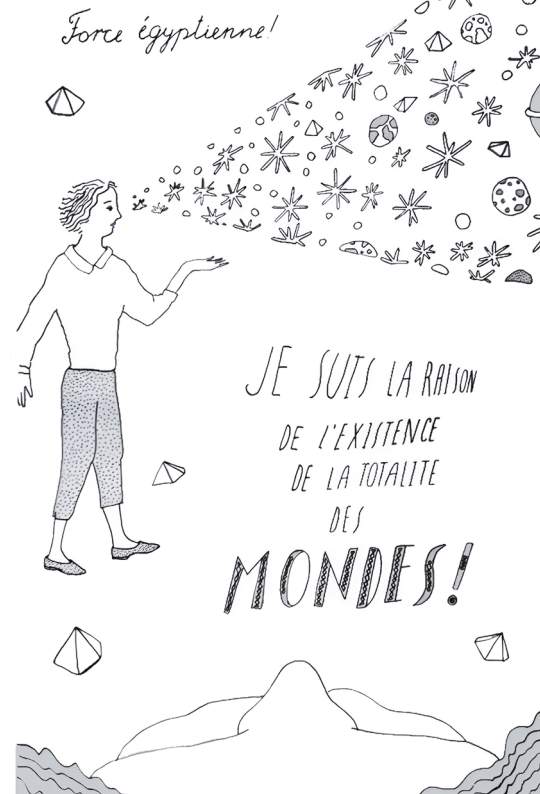 Force égyptienne!
JE SUIS LA RAISON
DE L'EXISTENCE
DE LA TOTALITE
DES
MONDES!